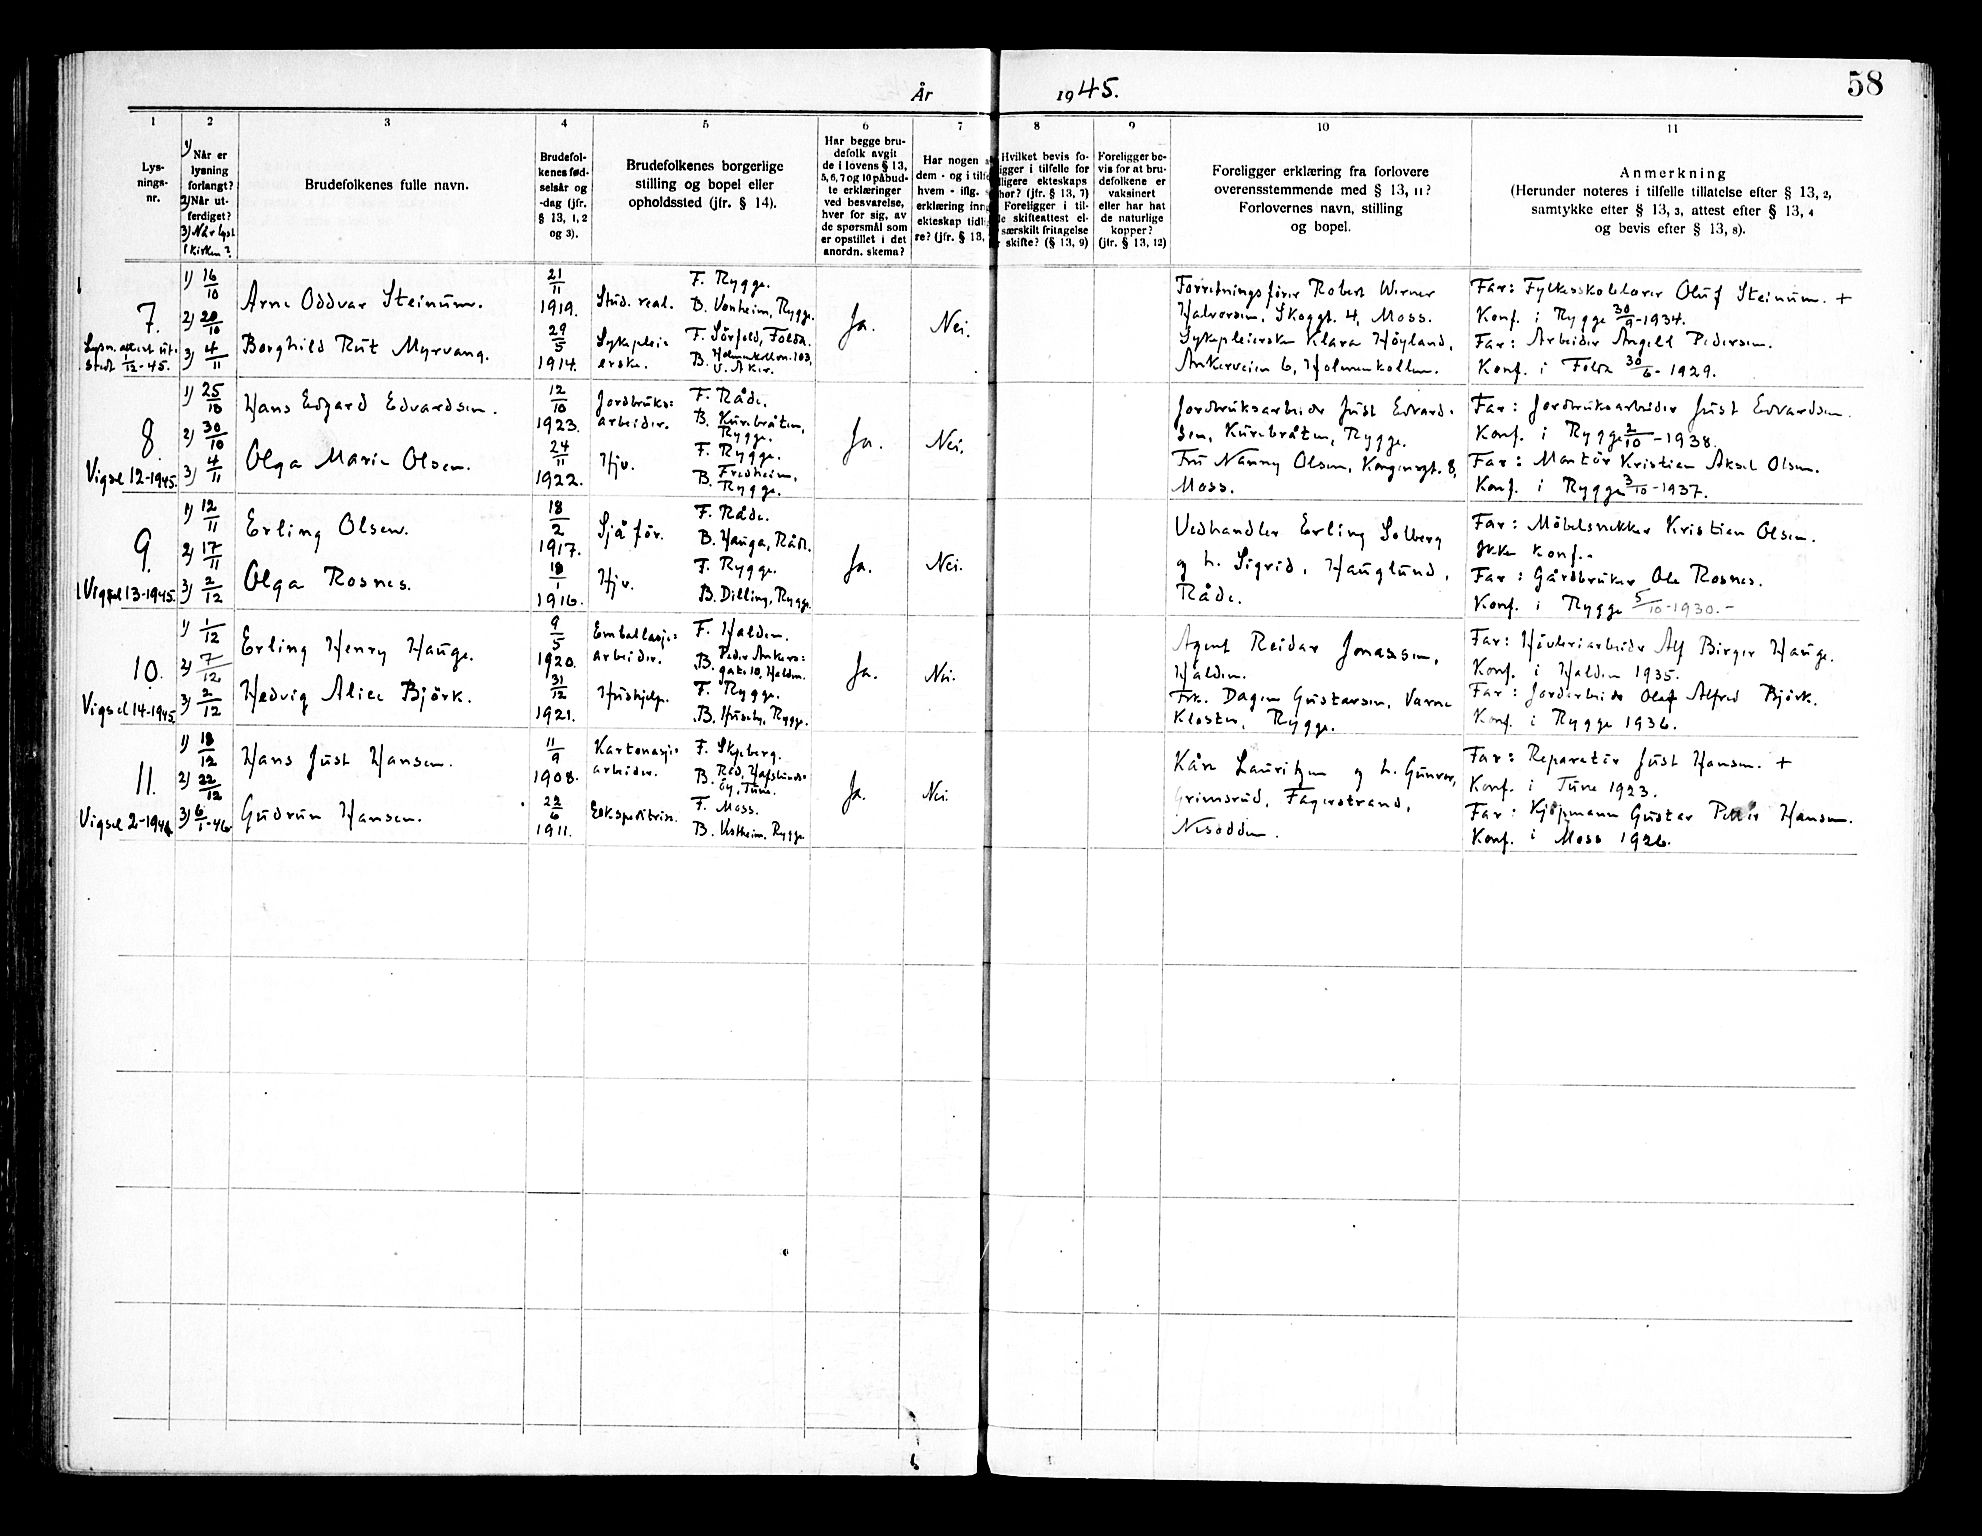 År 1945.
58
1 2 3 4 5 6 7 8 9 10 11
Lys-
nings-
nr.
1) Når er
lysning
forlangt?
2) Når ut-
ferdiget?
3) Når lyst
i kirken?
Brudefolkenes fulle navn.
Brudefol-
kenes fød-
selsår og
-dag (jfr.
§ 13, 1, 2
og 3).
Brudefolkenes borgerlige
stilling og bopel eller
opholdssted (jfr. § 14).
Har begge bru-
defolk avgit
de i lovens § 13,
5, 6, 7 og 10 påbud-
te erklæringer
ved besvarelse,
hver for sig, av
de spørsmål som
er opstillet i det
anordn. skema?
Har nogen a
dem - og i tilf
hvem - iflg.
erklæring inng
ekteskap tidl
re? (jfr. § 13,
Hvilket bevis fo-
igger i tilfelle for
ligere ekteskaps
hør? (jfr. § 13, 7)
Foreligger i til-
e skifteattest el-
særskilt fritagelse
skifte? (§ 13, 9)
Foreligger be-
vis for at bru-
defolkene er
vaksinert
eller har hat
de naturlige
kopper?
(jfr. § 13, 12)
Foreligger erklæring fra forlovere
overensstemmende med § 13, 11?
Forlovernes navn, stilling
og bopel.
Anmerkning
(Herunder noteres i tilfelle tillatelse efter § 13, 2,
samtykke efter § 13, 3, attest efter § 13, 4
og bevis efter § 13, 8).
7.
Lysn.attest ut-
stedt 1/12-45.
1) 16/10
2) 20/10
3) 4/11
Arne Oddvar Steinum.
Borghild Rut Myrvang.
21/11
1919.
29/5
1914.
Stud. real.
Sykeplei-
erske.
F. Rygge.
B. Vonheim, Rygge.
F. Sörfold, Folda.
B. Holmenkollvn. 103,
V. Aker.
Ja.
Nei.
Forretningsförer Robert Werner
Halvorsen, Skoggt. 4, Moss.
Sykepleierske Klara Höyland,
Ankerveien 6, Holmenkollen.
Far: Fylkesskolelærer Oluf Steinum. +
Konf. i Rygge 30/9-1934.
Far: Arbeider Angell Pedersen.
Konf. i Folda 30/6-1929.
8.
Vigsel 12-1945.
1) 25/10
2) 30/10
3) 4/11
Hans Edgard Edvardsen.
Olga Marie Olsen.
12/10
1923.
24/11
1922.
Jordbruks-
arbeider.
Hjv.
F. Råde.
B. Kurebråten,
Rygge.
F. Rygge.
B. Fredheim,
Rygge.
Ja.
Nei.
Jordbruksarbeider Just Edvard-
sen, Kurebråten, Rygge.
Fru Nanny Olsen, Kongensgt. 8,
Moss.
Far: Jordbruksarbeider Just Edvardsen.
Konf. i Rygge 2/10-1938.
Far: Montör Kristian Aksel Olsen.
Konf. i Rygge 3/10-1937.
9.
Vigsel 13-1945.
1) 12/11
2) 17/11
3) 2/12
Erling Olsen.
Olga Rosnes.
18/2
1917.
18/1
1916.
Sjåför.
Hjv.
F. Råde.
B. Hauga, Råde.
F. Rygge.
B. Dilling, Rygge.
Ja.
Nei.
Vedhandler Erling Solberg
og h. Sigrid, Hauglund,
Råde.
Far: Möbelsnekker Kristian Olsen.
Ikke konf.-
Far: Gårdbruker Ole Rosnes.
Konf. i Rygge 5/10-1930.-
10.
Vigsel 14-1945
1) 1/12
2) 7/12
3) 2/12
Erling Henry Hauge.
Hedvig Alice Björk.
9/5
1920.
31/12
1921.
Emballasje-
arbeider.
Hushjelp.
F. Halden.
B. Peder Ankers-
gate 10, Halden.
F. Rygge.
B. Huseby, Rygge.
Ja.
Nei.
Agent Reidar Jonassen,
Halden.
Frk. Dagen Gustavsen, Varne
Kloster, Rygge.
Far: Hövleriarbeider Alf Birger Hauge.
Konf. i Halden 1935.
Far: Jordarbeider Olaf Alfred Björk.
Konf. i Rygge 1936.
11.
Vigsel 2-1946
1) 18/12
2) 22/12
3) 6/1-46
Hans Just Hansen.
Gudrun Hansen.
11/9
1908.
22/6
1911.
Kartonasje-
arbeider.
Ekspeditrise.
F. Skjeberg.
B. Hafslunds-
öy, Tune.
F. Moss.
B. Rygge.
Ja.
Nei.
Kåre Lauritzen og h. Gunvor,
Grimsrud, Fagerstrand,
Nesodden.
Far: Reparatör Just Hansen. +
Konf. i Tune 1923.
Far: Kjöpmann Gustav Peter Hansen.
Konf. i Moss 1926.